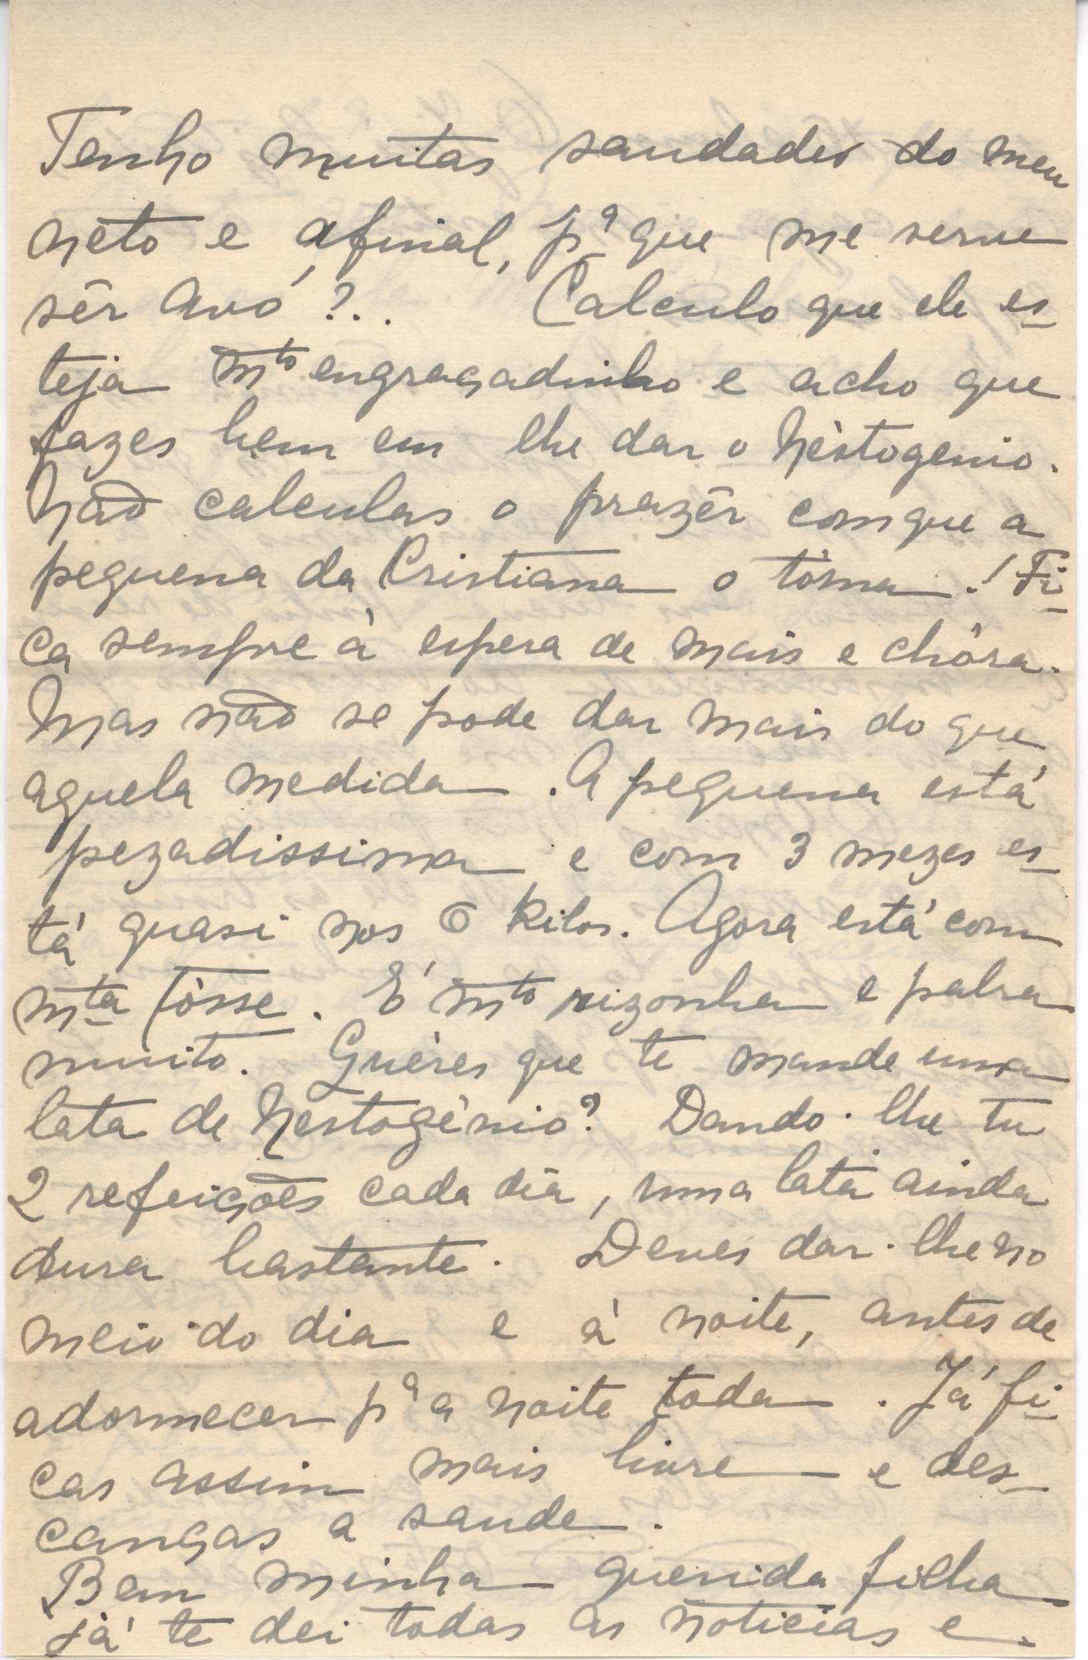 Tenho muitas saudades do meu
nèto e afinal, pª que me serve
sêr Avó?.. Calculo que ele es-
teja mto engraçadinho e acho que
fazes bem em lhe dar o Nèstogenio.
Não calculas o prazêr com que a
pequena da Cristiana o tóma! Fi-
ca sempre à espera de mais e chóra.
Mas não se pode dar mais do que
aquela medida. A pequena está
pezadissima e com 3 mezes es-
tá quasi nos 6 kilos. Agora está com
mta tósse. É mto rizonha e palra
muito. Quéres que te mande uma
lata de Nestogénio? Dando-lhe tu
2 refeições cada dia, uma lata ainda
dura bastante. Deves dar-lhe no
meio do dia e à noite, antes de
adormecer pª a noite toda. Já fi-
cas assim mais livre e des-
canças a saude.
Bem minha querida filha
já te dei todas as noticias e